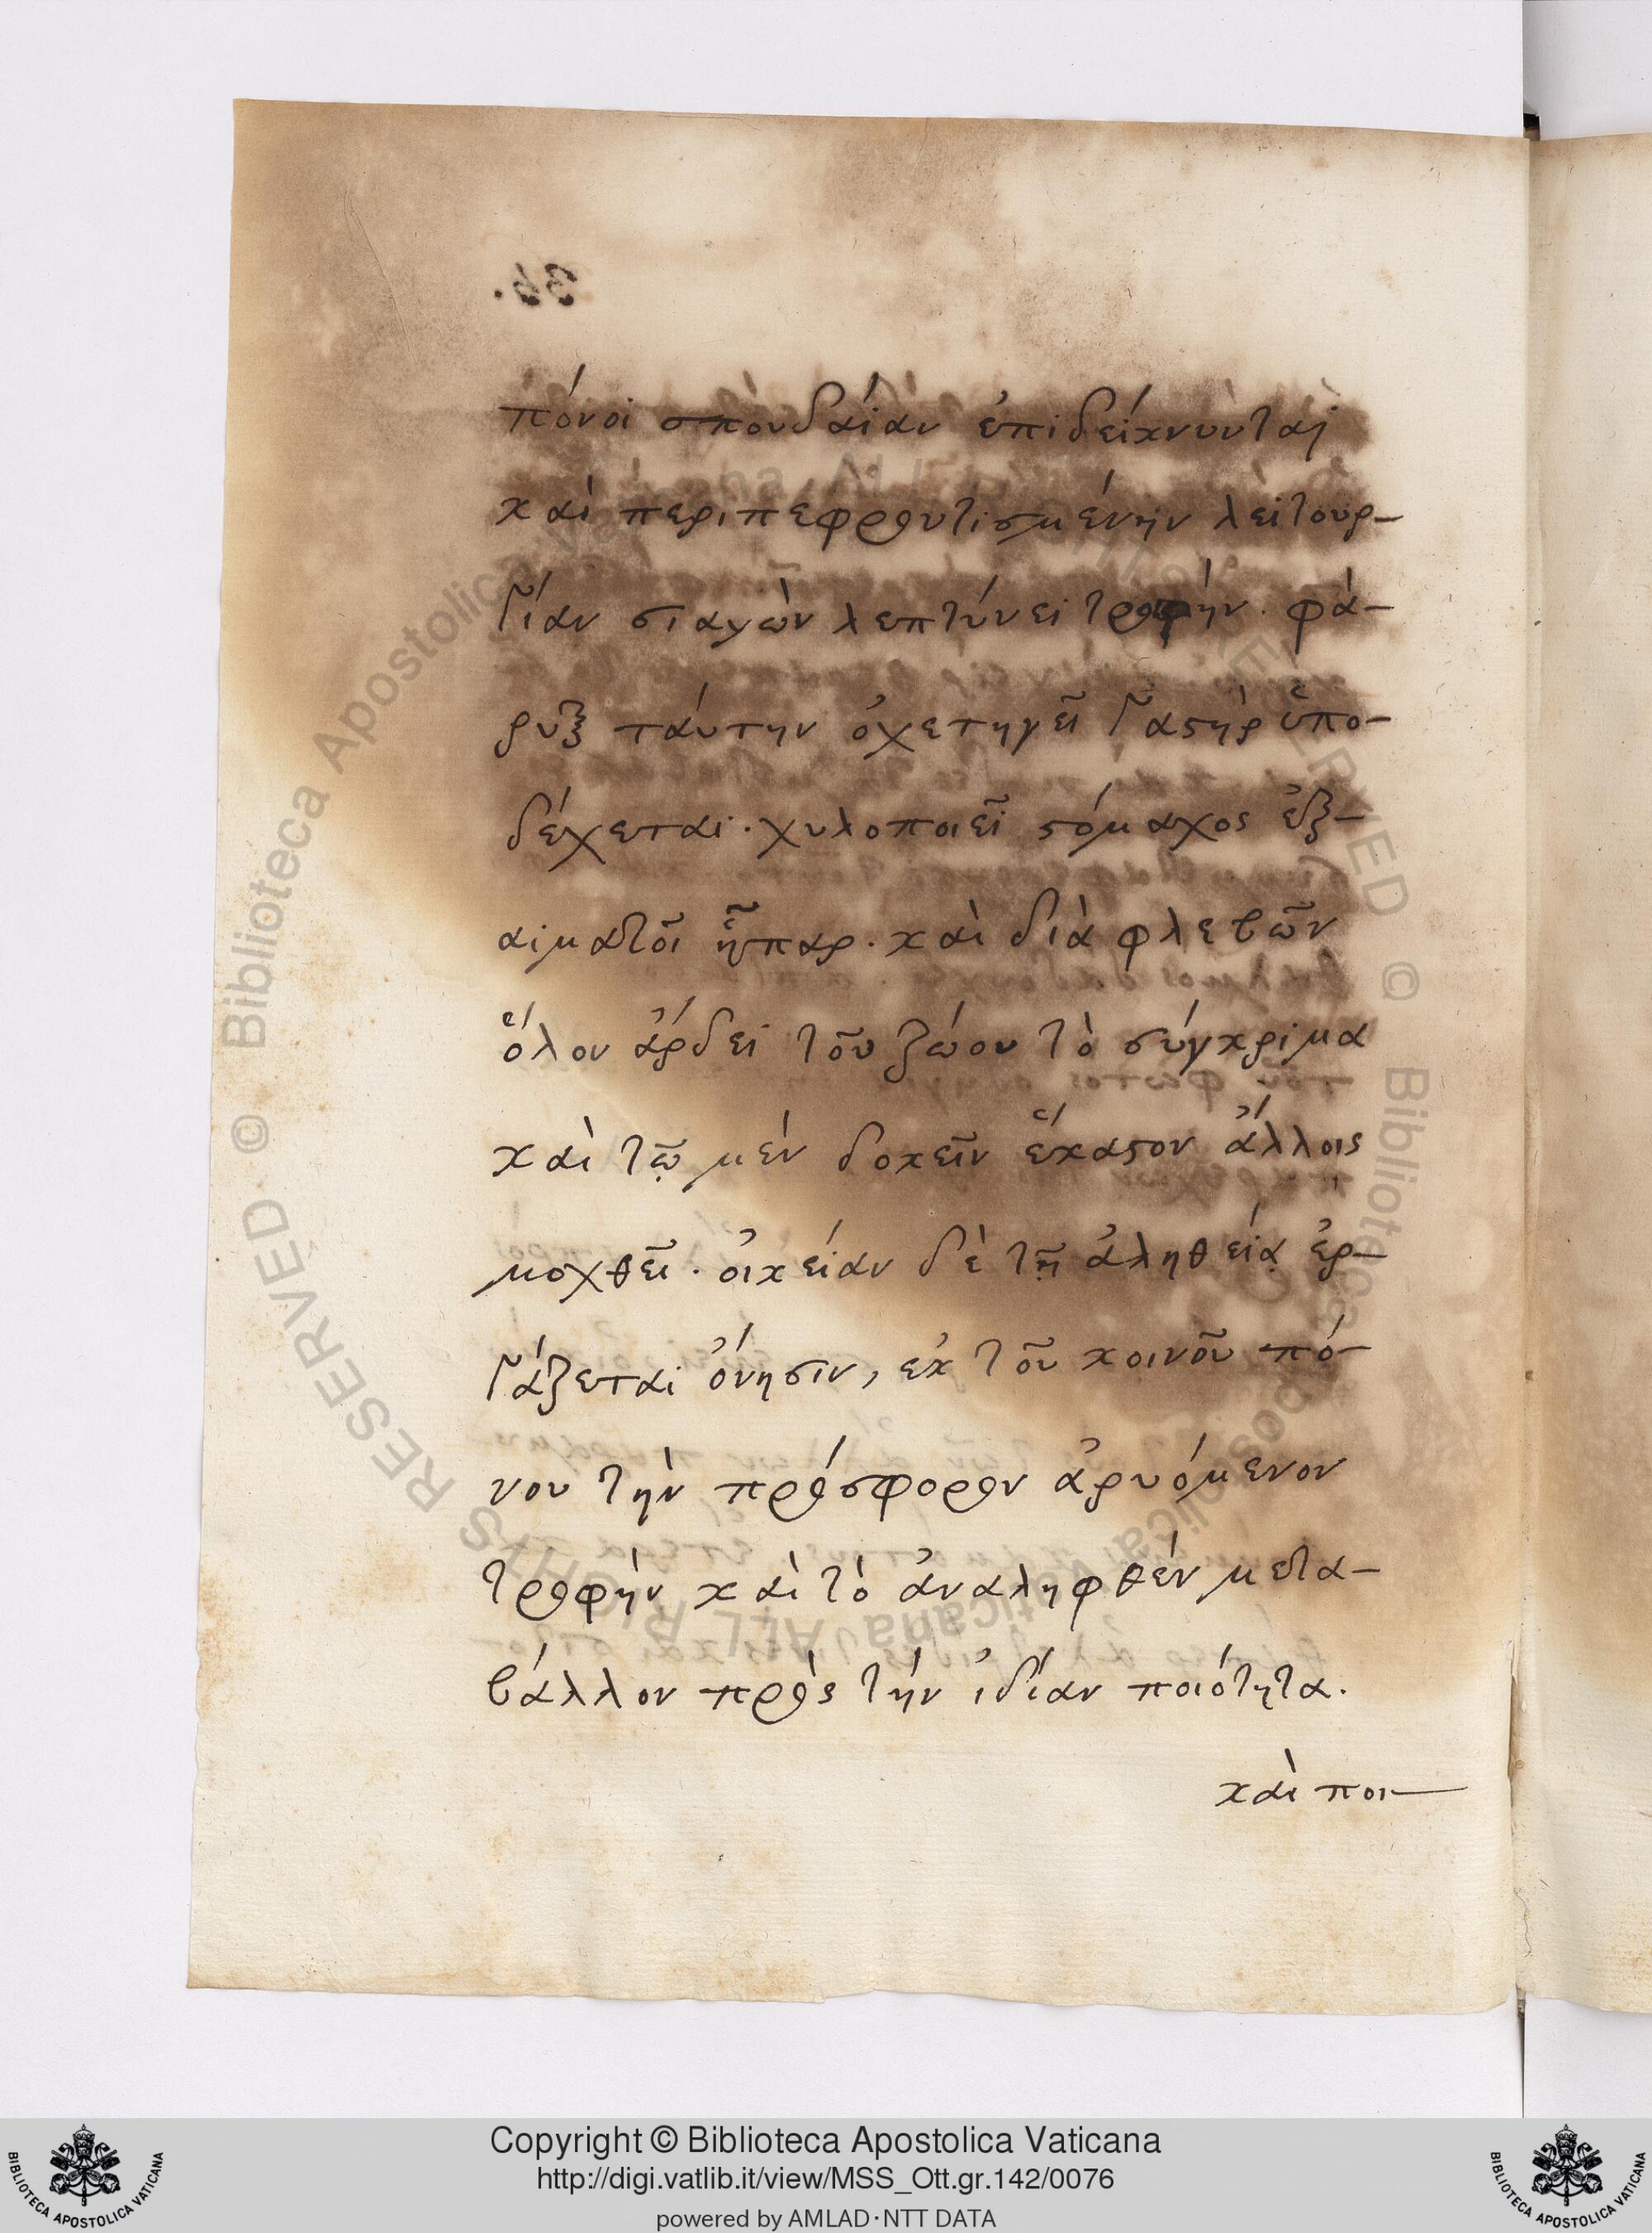 πόνοι σπουδαίαν ἐπιδείκνυνται
καὶ περιπεφροντισμένην λειτουρ-
γίαν σιαγὼν λεπτύνει τροφήν. φά-
ρυξ ταύτην ὀχετηγεῖ γαστὴρ ὑπο-
δέχεται. χυλοποιεῖ στόμαχος ἐξ-
αιματοῖ ἧπαρ. καὶ διὰ φλεβῶν
ὅλον ἄρδει τοῦ ζώου τὸ σύγκριμα
καὶ τῷ μὲν δοκεῖν ἕκαστον ἄλλοις
μοχθεῖ. οἰκείαν δὲ τῇ ἀληθείᾳ ἐρ-
γάζεται ὄνησιν, ἐκ τοῦ κοινοῦ πό-
νου τὴν πρόσφορον ἀρυόμενον
τροφὴν καὶ τὸ ἀναληφθὲν μετα-
βάλλον πρὸς τὴν ἰδίαν ποιότητα.
καὶ ποι-
Copyright © Biblioteca Apostolica Vaticana
http://digi.vatlib.it/view/MSS_Ott.gr.142/0076
powered by AMLAD·NTT DATA
BIBLIOTECA APOSTOLICA VATICANA
BIBLIOTECA APOSTOLICA VATICANA